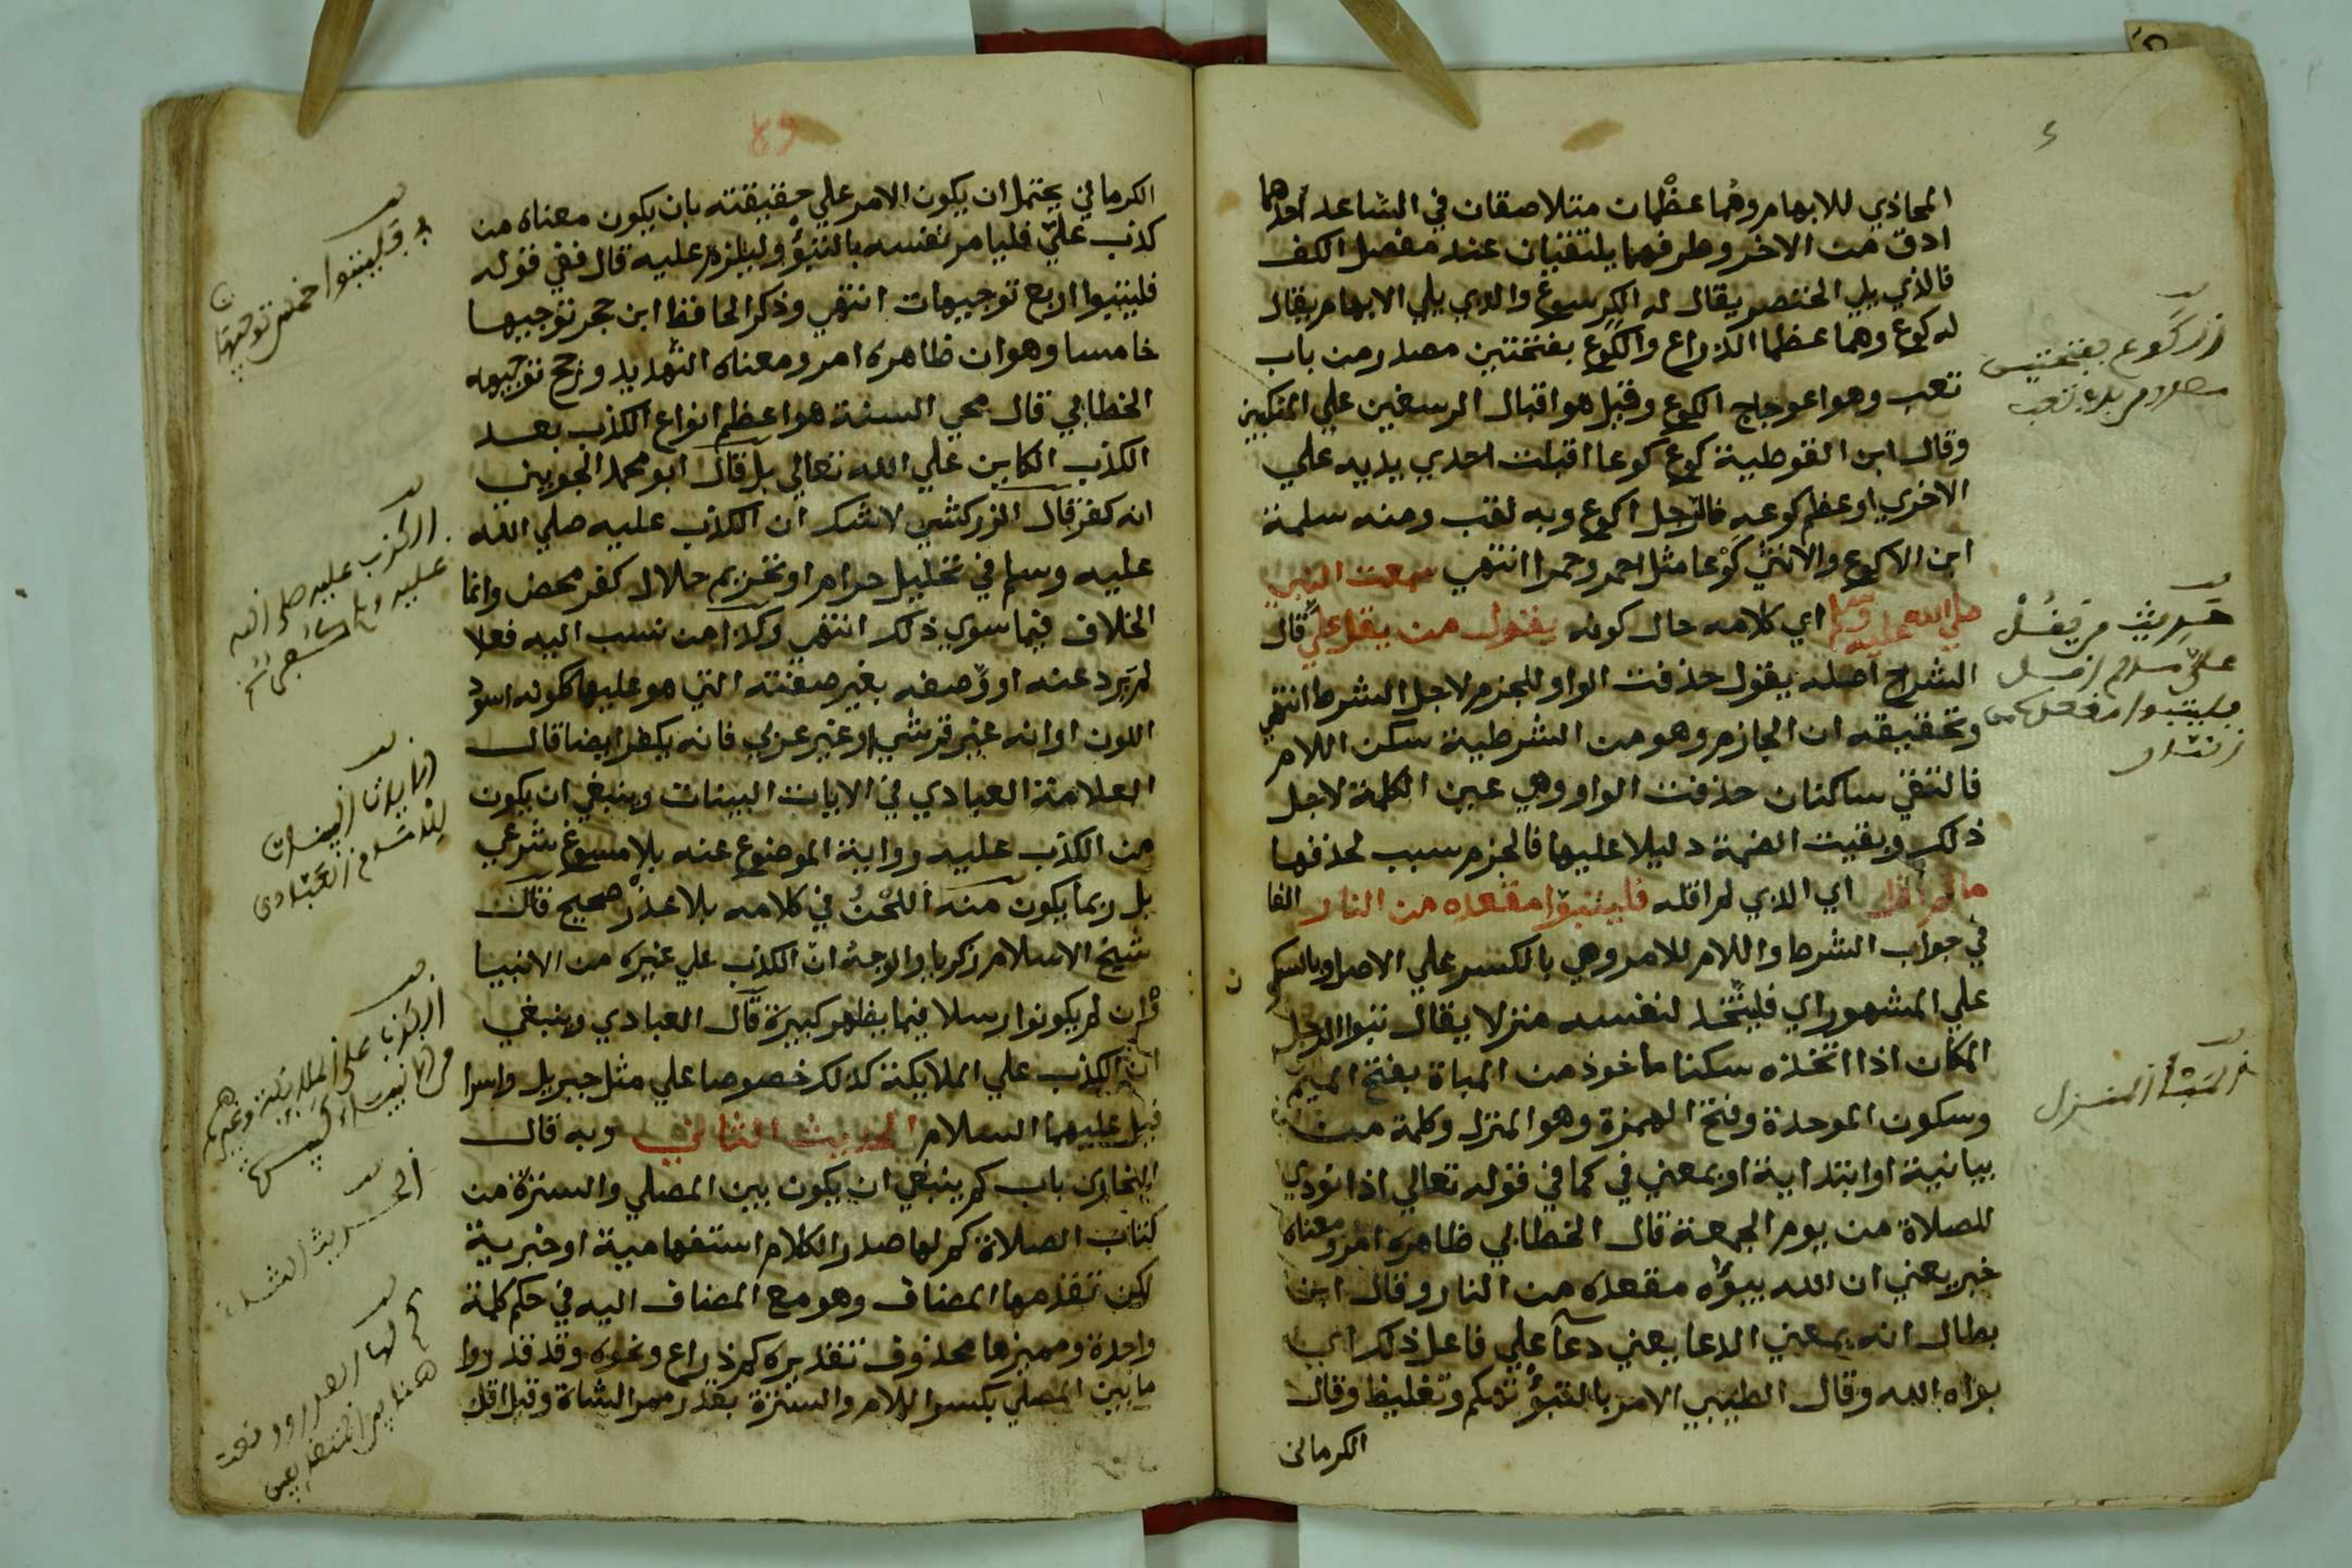 المحاذي للابهام وهما عظمان متلاصقان في الساعد احدهما
ادق من الاخر وطرفهما يلتقيان عند مفصل الكف
فالذي يلي الخنصر يقال له الكرسوع والذي يلي الابهام يقال
له كوع وهما عظما الذراع والكوع بفتحتين مصدر من باب
تعب وهو اعوجاج الكوع وقيل هو اقبال الرسغين علي المنكبين
وقال ابن القوطية كوع كوعا اقبلت احدي يديه علي
الاخري او عظم كوعه فالرجل اكوع وبه لقب ومنه سلمة
ابن الاكوع والانثي كوعا مثل احمر وحمرا انتهي سمعت النبي
صلي الله عليه وسلم اي كلامه حال كونه يقول من يقل علي قال
الشراح اصله يقول حذفت الواو للجزم لاجل الشرط انتهي
وتحقيقه ان الجازم وهو من الشرطية سكن اللام
فالتقي ساكنان حذفت الواو وهي عين الكلمة لاجل
ذلك وبقيت الضمة دليلا عليها فالجزم سبب لحذفها
ما لم اقل اي الذي لم اقله فليتبوا مقعده من النار الفا
في جواب الشرط واللام للامر وهي بالكسر علي الاصل وبالسكون
علي المشهور اي فليتخذ لنفسه منزلا يقال تبوا الرجل
المكان اذا اتخذه سكنا ماخوذ من المباة بفتح الميم
وسكون الموحدة وفتح الهمزة وهو المنزل وكلمة من
بيانية او ابتدائية او بمعني في كما في قوله تعالي اذا نودي
للصلاة من يوم الجمعة قال الخطابي ظاهره امر ومعناه
خبر يعني ان الله يبوؤه مقعده من النار وقال ابن
بطال انه بمعني الدعا يعني دعا علي فاعل ذلك اي
بواه الله وقال الطيبي الامر بالتبوؤ تهكم وتغليظ وقال
الكرماني
زر كوع بفتحتين
مصدر من باب تعب
حديث من يقل
المباة المنزل
الكرماني يحتمل ان يكون الامر علي حقيقته بان يكون معناه من
كذب علي فليامر نفسه بالتبوؤ وليلزم عليه قال ففي قوله
فليتبوا اربع توجيهات انتهي وذكر الحافظ ابن حجر توجيها
خامسا وهو ان ظاهره امر ومعناه التهديد ورجح توجيه
الخطابي قال محي السنة هو اعظم انواع الكذب بعد
الكذب الكاين علي الله تعالي بل قال ابو محمد الجويني
انه كفر قال الزركشي لا شك ان الكذب عليه صلي الله
عليه وسلم في تحليل حرام او تحريم حلال كفر محض وانما
الخلاف فيما سوي ذلك انتهي وكذا من نسب اليه فعلا
لم يرد عنه او وصفه بغير صفته التي هو عليها ككونه اسود
اللون او انه غير قرشي او غير عربي فانه يكفر ايضا قال
العلامة العبادي في الايات البينات وينبغي ان يكون
من الكذب عليه رواية الموضوع عنه بلا مسوغ شرعي
بل ربما يكون منه اللحن في كلامه بلا عذر صحيح قال
شيخ الاسلام زكريا والوجه ان الكذب علي غيره من الانبيا
وان لم يكونوا رسلا فيما يظهر كبيرة قال العبادي وينبغي
ان الكذب علي الملايكة كذلك خصوصا علي مثل جبريل واسرا
فيل عليهما السلام الحديث الثاني وبه قال
البخاري باب كم ينبغي ان يكون بين المصلي والسترة من
كتاب الصلاة كم لها صدر الكلام استفهامية او خبرية
لكن تقدمها المضاف وهو مع المضاف اليه في حكم كلمة
واحدة ومميزها محذوف تقديره كم ذراع ونحوه وقد قدروا
ما بين المصلي بكسر اللام والسترة بقدر ممر الشاة وقيل اقل
فليتبوا خمس توجيهات
الكذب عليه صلى الله
عليه وسلم
الايات البينات
للعلامة العبادي
الكذب على الملايكة وغيرهم
من الانبياء ليس
الحديث الثاني
كم لها الصدر ووقعت
هنا بين المتضايفين